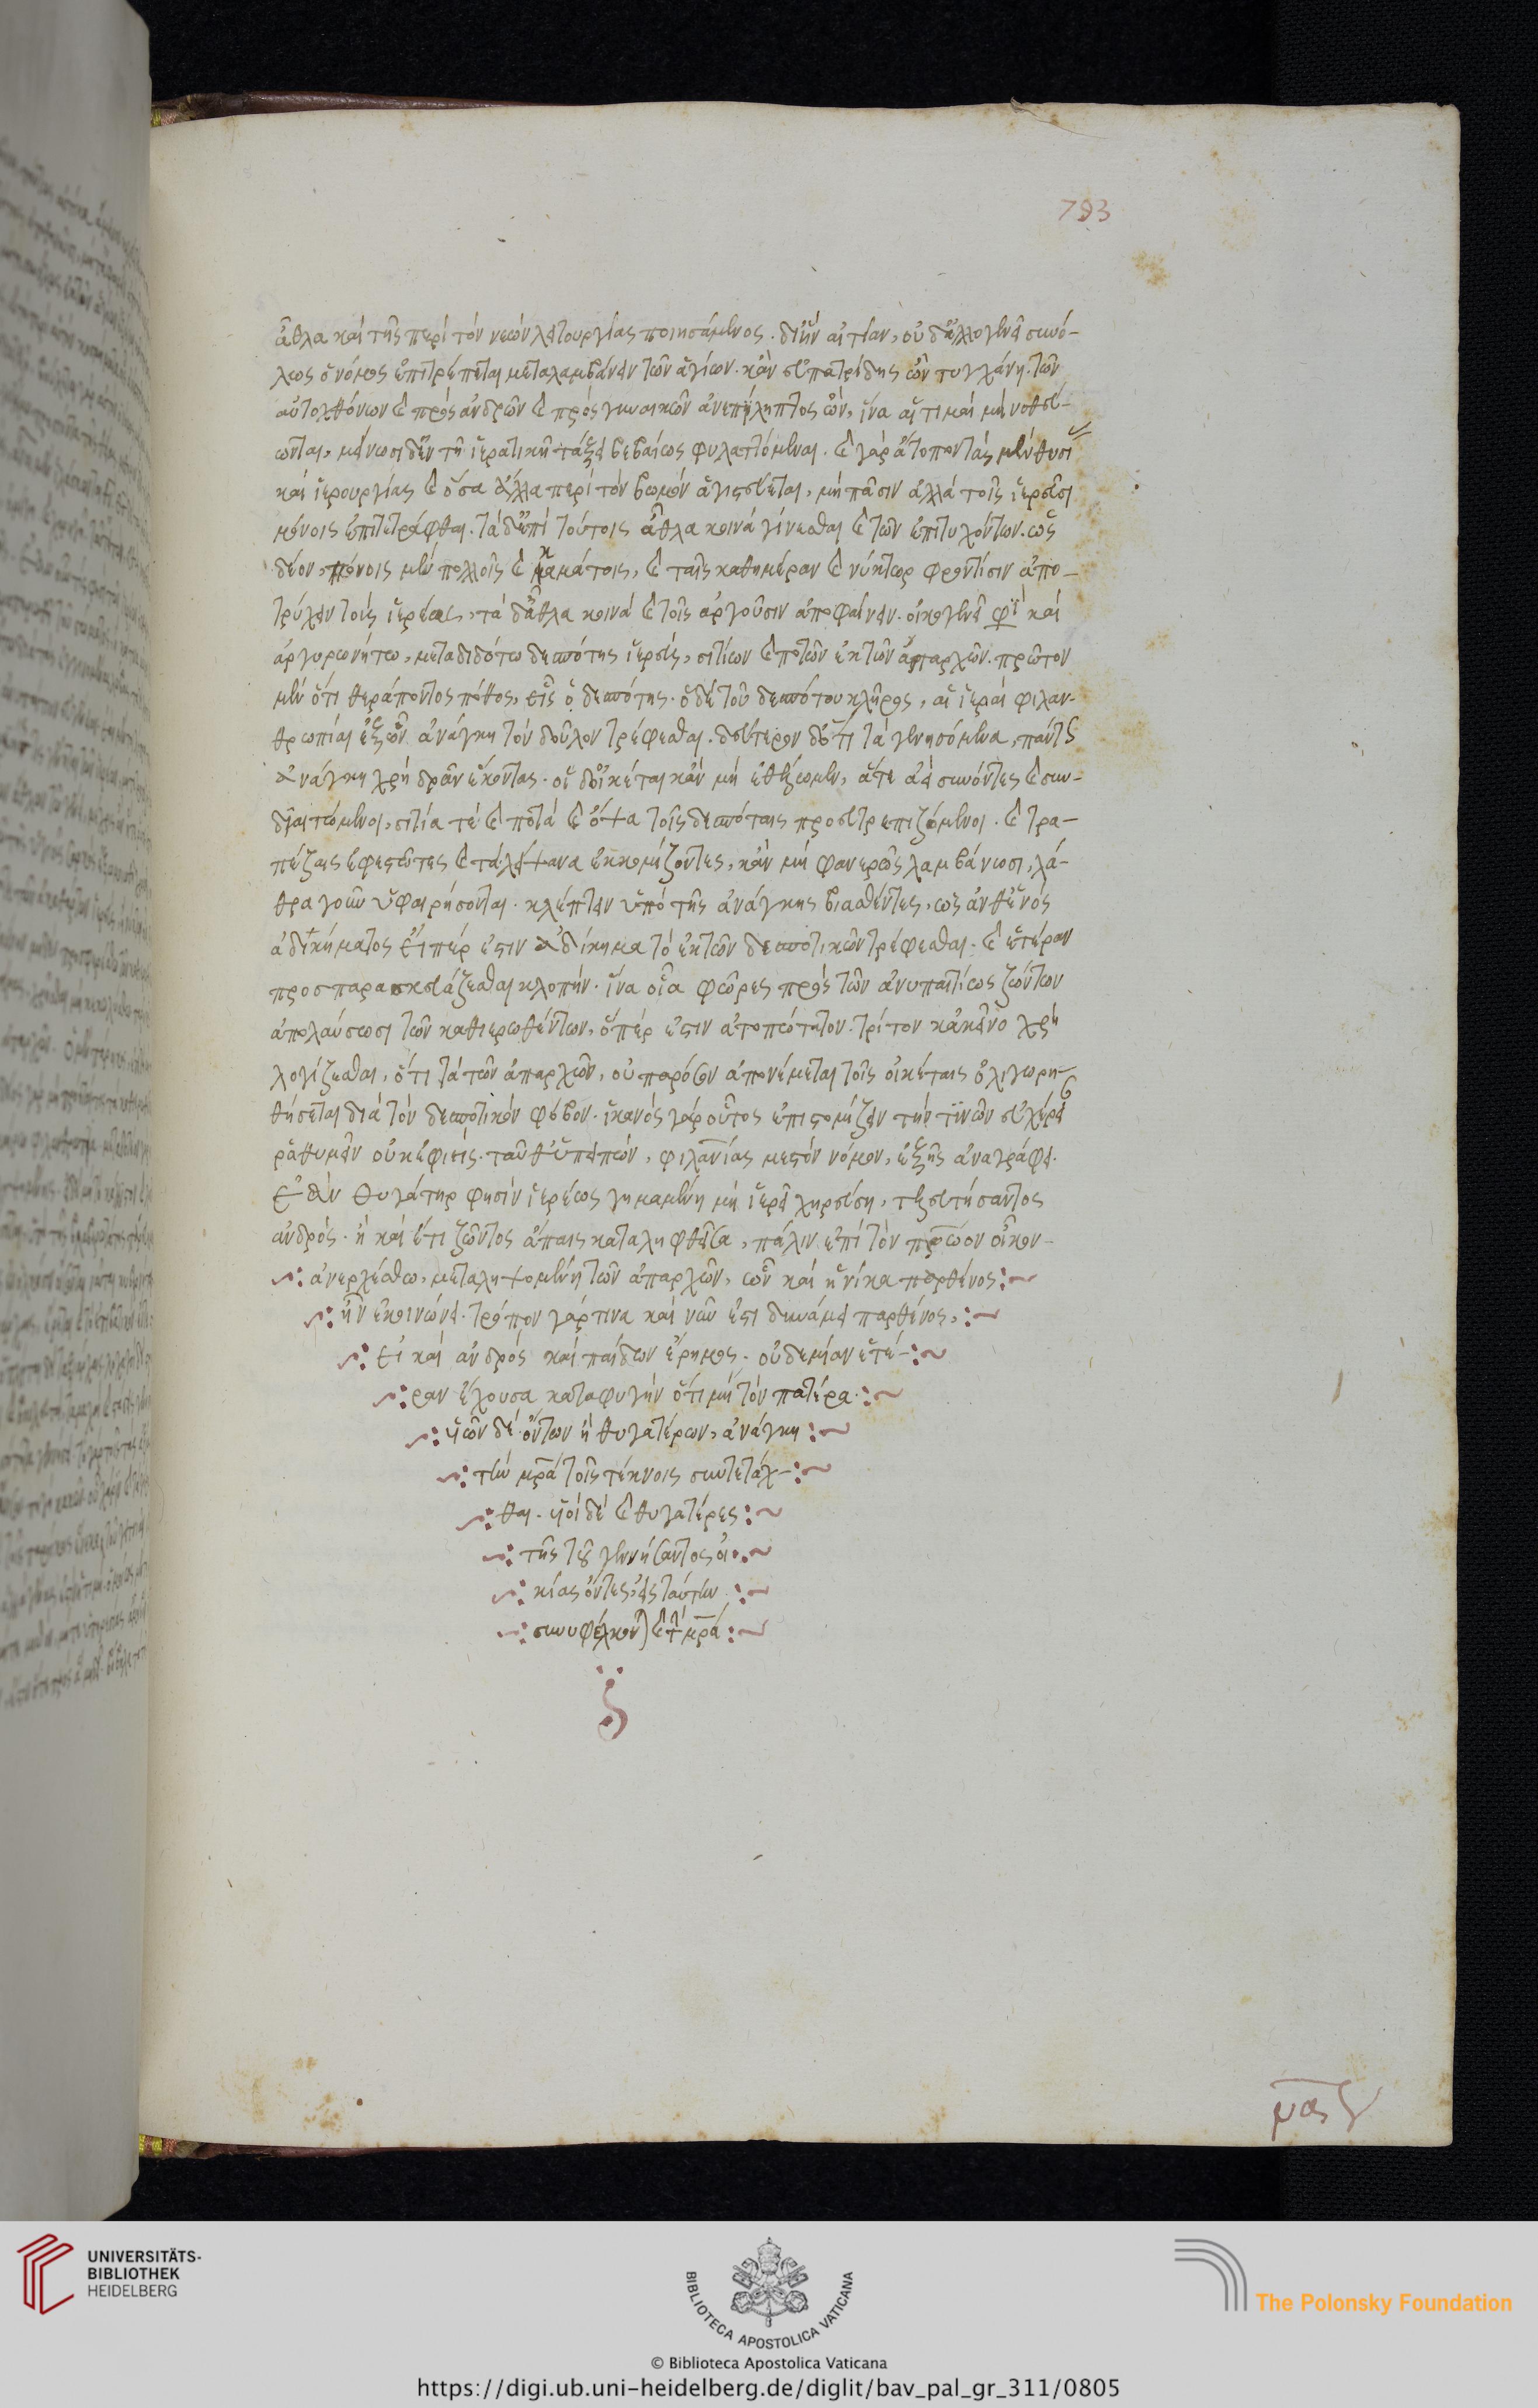 793
ἆθλα καὶ τῆς περὶ τὸν νεὼν λειτουργίας ποιησάμενος. δι' ἣν αἰτίαν, οὐδ' ἀλλογενεῖ συνό-
λως ὁ νόμος ἐπιτρέπεται μεταλαμβάνειν τῶν ἁγίων. κἂν εὐπατρίδης ὢν τυγχάνῃ. τῶν
αὐτοχθόνων καὶ πρὸς ἀνδρῶν καὶ πρὸς γυναικῶν ἀνεπίληπτος ὤν, ἵνα αἱ τιμαὶ μὴ νοθεύ-
ωνται, μένωσι δ' ἐν τῇ ἱερατικῇ τάξει βεβαίως φυλαττόμεναι. καὶ γὰρ ἄτοπον τὰς μὲν θυσί
καὶ ἱερουργίας καὶ ὅσα ἄλλα περὶ τὸν βωμὸν ἁγιστεύεται, μὴ πᾶσιν ἀλλὰ τοῖς ἱερεῦσι
μόνοις ἐπιτετράφθαι. τὰ δ' ἐπὶ τούτοις ἆθλα κοινὰ γίνεσθαι καὶ τῶν ἐπιτυχόντων. ὡς
δέον, πόνοις μὲν πολλοῖς καὶ καμάτοις, καὶ ταῖς καθημέραν καὶ νύκτωρ φροντίσιν ἀπο-
τρύχειν τοὺς ἱερέας, τὰ δ' ἆθλα κοινὰ καὶ τοῖς ἀργοῦσιν ἀποφαίνειν. οἰκογενεῖ φὶ καὶ
ἀργυρωνήτω, μεταδιδότω δεσπότης ἱερεύς, σιτίων καὶ ποτῶν ἐκ τῶν ἀπαρχῶν. πρῶτον
μὲν ὅτι θεράποντος πόθος, εἷς ὁ δεσπότης. ὁ δὲ τοῦ δεσπότου κλῆρος, αἱ ἱεραὶ φιλαν-
θρωπίαι ἐξ ὧν ἀνάγκη τὸν δοῦλον τρέφεσθαι. δεύτερον δ' ὅτι τὰ γενησόμενα, πάντς
ἀνάγκη χρὴ δρᾶν ἑκόντας. οἱ δ' οἰκέται κἂν μὴ ἐθέλωμεν, ἅτε ἀεὶ συνόντες καὶ συν-
διαιτώμενοι, σιτία τὲ καὶ ποτὰ καὶ ὄψα τοῖς δεσπόταις προευτρεπιζόμενοι. καὶ τρα-
πέζαις ἐφεστῶτες καὶ τὰ λείψανα ἐκκομίζοντες, κἂν μὴ φανερῶς λαμβάνωσι, λά-
θρα γοῦν ὑφαιρήσονται. κλέπτειν ὑπὸ τῆς ἀνάγκης βιασθέντες, ὡς ἀνθ' ἑνὸς
ἀδικήματος εἴπέρ ἐστιν ἀδίκημα τὸ ἐκ τῶν δεσποτικῶν τρέφεσθαι. καὶ ἑτέραν
προσπαρασκευάζεσθαι κλοπήν. ἵνα οἷα φῶρες πρὸς τῶν ἀνυπαιτίως ζώντων
ἀπολαύσωσι τῶν καθιερωθέντων, ὅπέρ ἐστιν ἀτοπώτατον. τρίτον κἀκεῖνο χρὴ
λογίζεσθαι, ὅτι τὰ τῶν ἀπαρχῶν, οὐ παρόσον ἀπονέμεται τοῖς οἰκέταις ὀλιγωρη-
θήσεται διὰ τὸν δεσποτικὸν φόβον. ἱκανὸς γὰρ οὗτος ἐπιστομίζειν τὴν τινῶν εὐχέρει
ῥαθυμεῖν οὐκ ἐφιείς. ταῦθ' ὑπειπών, φιλανίας μεστὸν νόμον, ἑξῆς ἀναγράφει.
ἐὰν θυγάτηρ φησὶν ἱερέως γημαμένη μὴ ἱερεῖ χηρεύσῃ, τελευτήσαντος
ἀνδρός. ἢ καὶ ἔτι ζῶντος ἄπαις καταληφθεῖσα, πάλιν ἐπὶ τὸν πρῶον οἶκον-
ἀνερχέσθω, μεταληψομένη τῶν ἀπαρχῶν, ὧν καὶ ἡνίκα παρθένος
ἦν ἐκοινώνει. τρόπον γάρ τινα καὶ νῦν ἐστι δυνάμει παρθένος,
εἰ καὶ ἀνδρὸς καὶ παίδων ἔρημος. οὐδεμίαν ἑτέ-
ραν ἔχουσα καταφυγὴν ὅτι μὴ τὸν πατέρα.
υἱῶν δὲ ὄντων ἢ θυγατέρων, ἀνάγκη
τὴν μρα τοῖς τέκνοις συντετάχ-
θαι. υἱοὶ δὲ καὶ θυγατέρες
τῆς τοῦ γεννήσαντος οἰ
κίας ὄντες, εἰς ταύτην
συνυφέλκον καὶ τ μρα
UNIVERSITÄTS-
BIBLIOTHEK
HEIDELBERG
BIBLIOTECA APOSTOLICA VATICANA
The Polonsky Foundation
© Biblioteca Apostolica Vaticana
https://digi.ub.uni-heidelberg.de/diglit/bav_pal_gr_311/0805